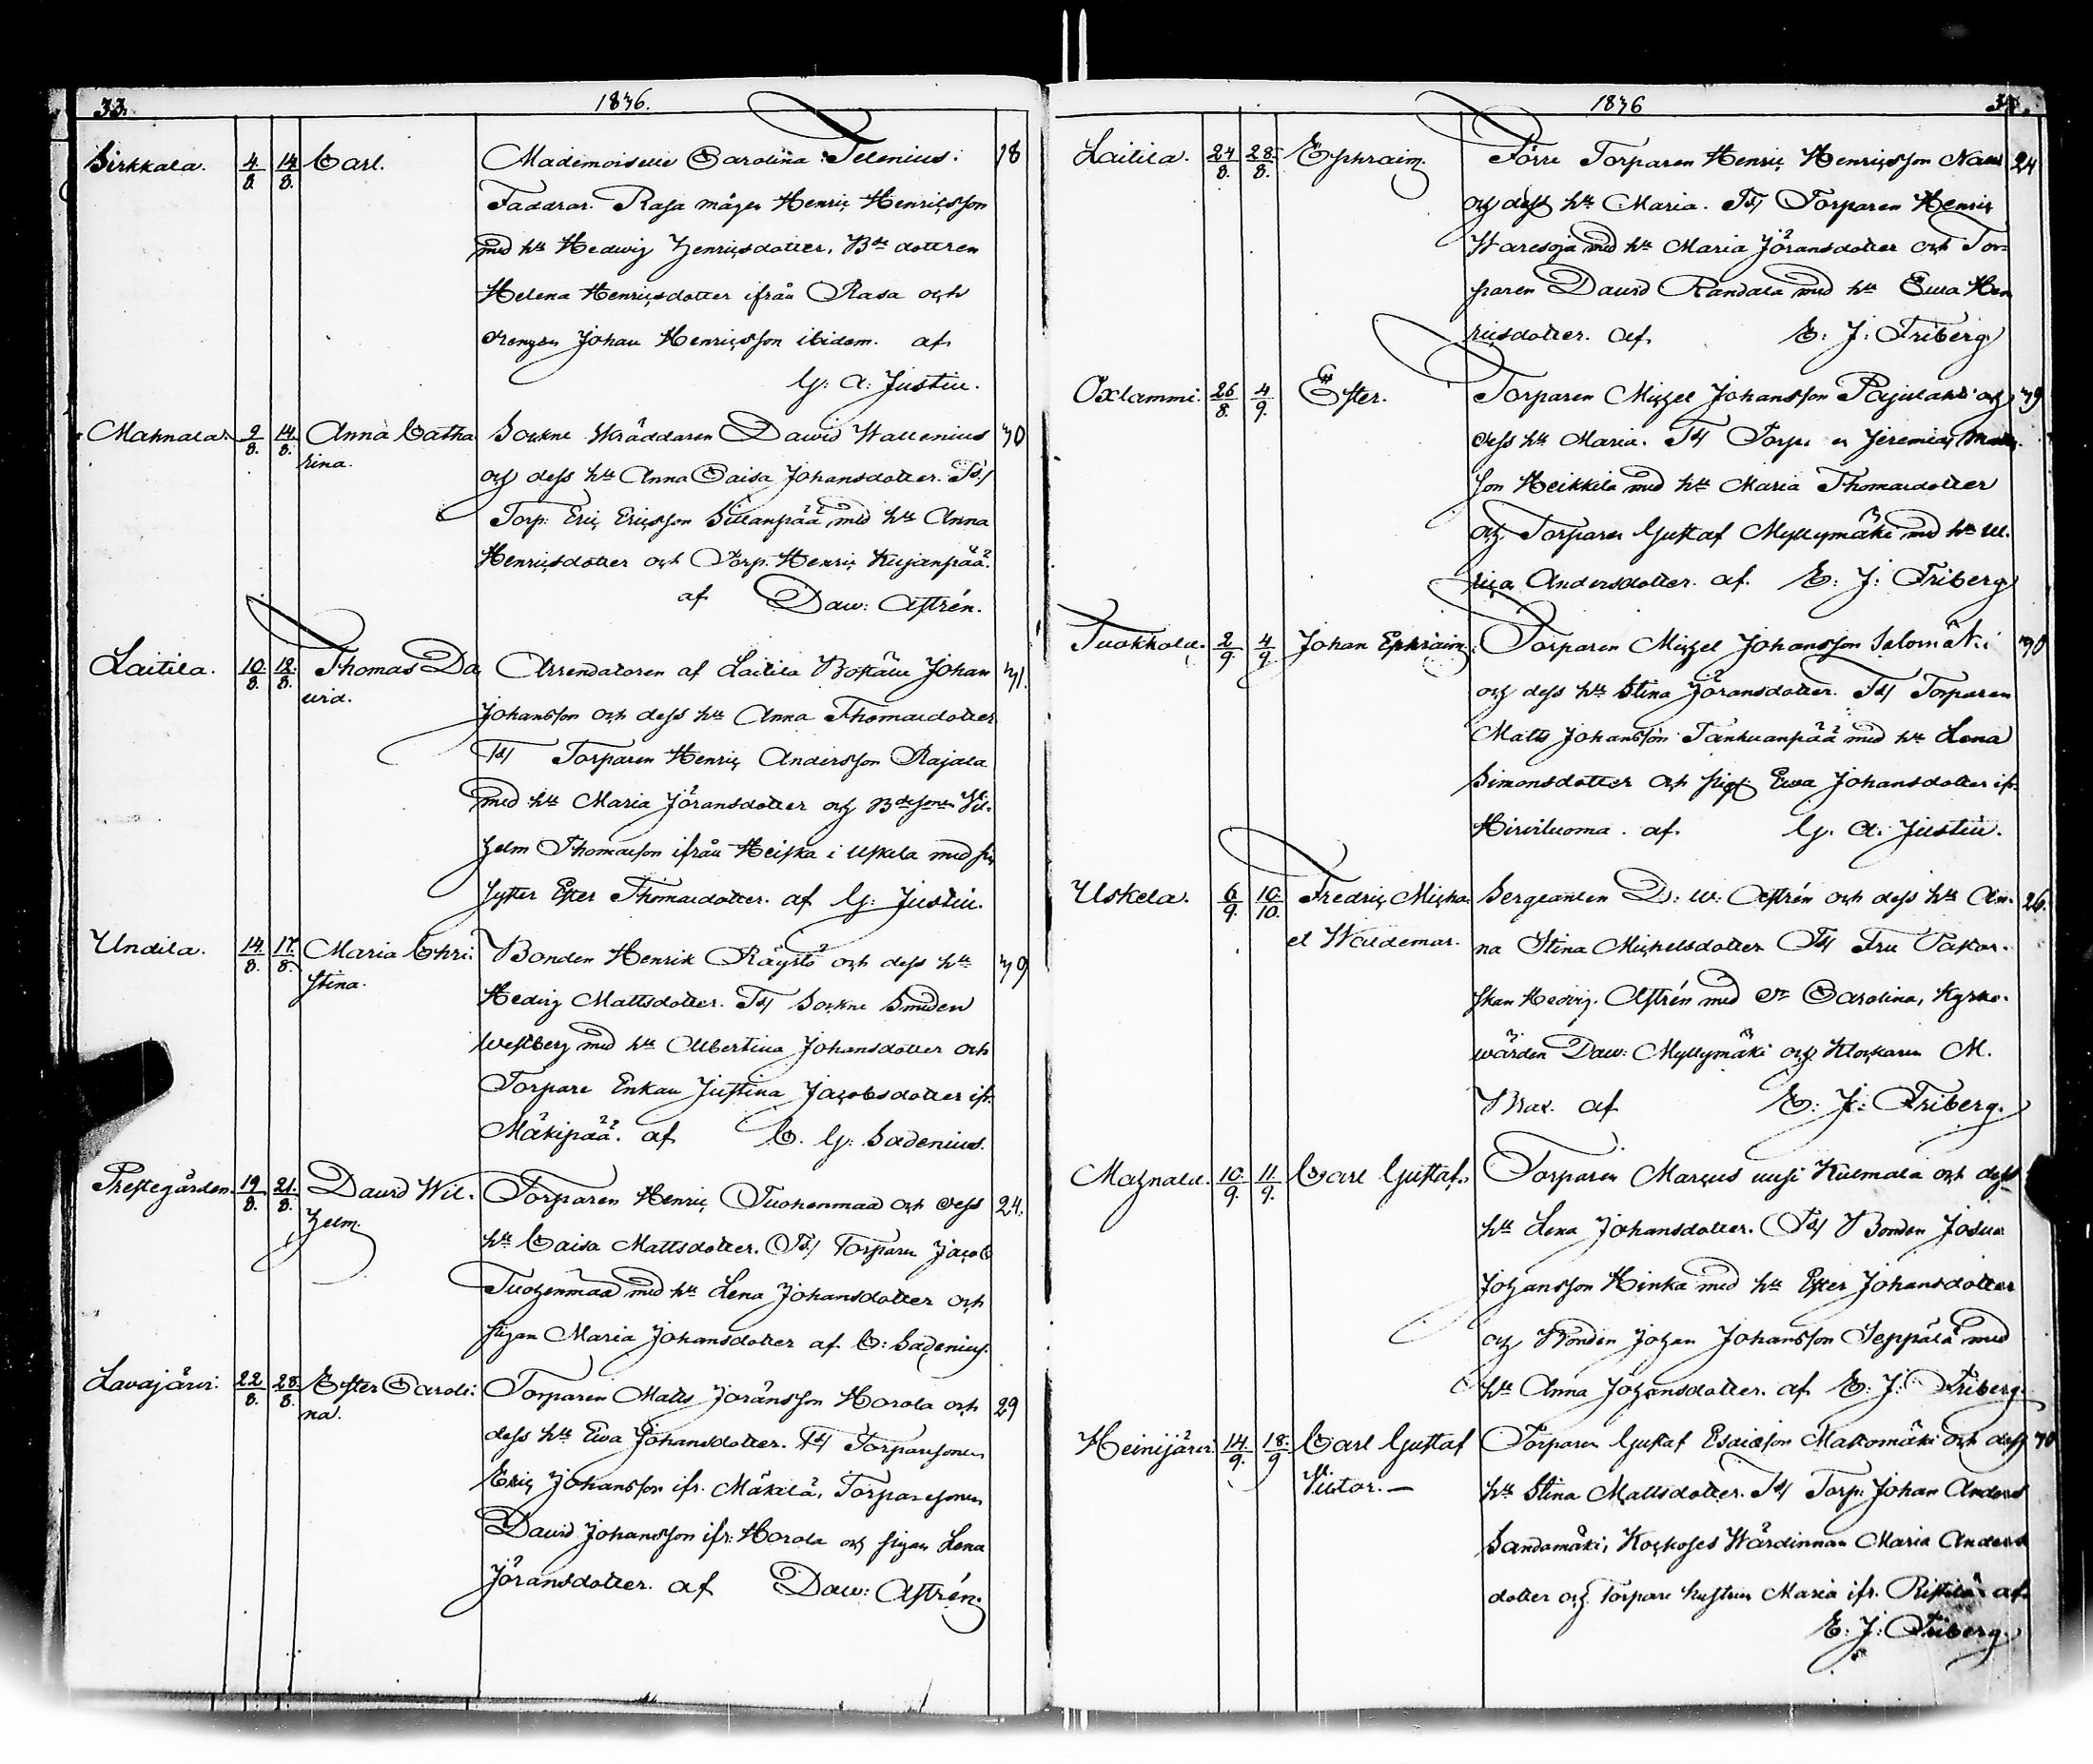 33. 1836.
Sirkkala. 4/8. 14/8. Carl. Mademoiselle Carolina Telenius. 18
Faddrar. Rasa mågen Henric Henricsson
med hu Hedwig Henricsdotter, Bde dottren
Helena Henricsdotter ifrån Rasa och
drengen Johan Henricsson ibidem. af
G: A: Justin.
Mahnala. 9/8. 14/8. Anna Catha Sockne Skräddaren Dawid Wallenius 30
rina.
och dess hu Anna Caisa Johansdotter. Td/
Torp: Eric Ericsson Sillanpää med hu Anna
Henricsdotter och Torp. Henric Kujanpää.
af Daw: Astrén.
Laitila. 10/8. 12/8. Thomas Da Arrendatoren af Laitila Boställe Johan 31.
wid.
Johansson och dess hu Anna Thomasdotter
Td/ Torparen Henric Andersson Rajala
med hu Maria Jöransdotter och Bdesonen Wil-
helm Thomasson ifrån Heiska i Uskela med sin
syster Ester Thomasdotter. af G: Justin.
Undila. 14/8. 17/8. Maria Chri- Bonden Henrik Räystö och dess hu 39
stina.
Hedvig Mattsdotter. Td/ Sockne Smeden
Westberg med hu Albertina Johansdotter och
Torpare Enkan Justina Jacobsdotter ifr.
Mäkipää. af C. G: Sadenius.
Prestegården. 19/8. 21/8. Dawid Wil- Torparen Henric Tuohenmaa och dess 24.
helm.
hu Caisa Mattsdotter. Td/ Torparen Jacob
Tuohenmaa med hu Lena Johansdotter och
pigan Maria Johansdotter af C: Sadenius.
Lavajärvi. 22/8. 28/8. Ester Caroli- Torparen Matts Joransson Horola och 29
na.
dess hu Ewa Johansdotter. Td/ Torparsonen
Eric Johansson ifr. Mäkelä, Torparesonen
David Johansson ifr: Horola och pigan Lena
Jöransdotter. af Daw: Astrén.
1836 34.
Laitila. 24/8. 28/8. Ephraim. Förre Torparen Henric Henricsson 24
och dess hu Maria. Td/ Torparen Henric
Waresoja med hu Maria Jöransdotter och Tor-
paren David Randala med hu Ewa Hen
ricsdotter. af E: J: Friberg
Oxlammi. 26/8. 4/9. Ester. Torparen Michel Johansson Pajulaks och 39
dess hu Maria. Td/ Torpe en Jeremias Matts-
son Heikkilä med hu Maria Thomasdotter
och Torparen Gustaf Myllymäki med hu Ul-
rica Andersdotter. af. E: J: Friberg
Tuokkola. 2/9. 4/9. Johan Ephraim. Torparen Michel Johansson Salomäki 30
och dess hu Stina Jöransdotter. Td/ Torparen
Matts Johansson Tankuanpää med hu Lena
Simonsdotter och pig. Ewa Johansdotter ifr.
Hirviluoma. af. G. A: Justin.
Uskela. 6/9. 10/10. Fredric Micha Sergeanten D: W: Astrén och dess hu An- 26.
el Waldemar.
na Stina Michelsdotter Td/ Fru Fakor-
skan Hedvig. Astrén med Dr Carolina, Kyrko-
wärden Daw: Myllymäki och Klockaren M.
Brax. af E: J: Friberg.
Mahnala. 10/9. 11/9. Carl Gustaf. Torparen Marcus uusi Kulmala och dess
hu Lena Johansdotter. Td/ Bonden Josua
Johansson Hinka med hu Ester Johansdotter
och Bonden Johan Johansson Seppälä med
hu Anna Johansdotter. af E: J: Friberg.
Heinijärvi 14/9. 18/9 Carl Gustaf Torparen Gustaf Esaiasson Mattomäki och dess 30
Victor. —
hu Stina Mattsdotter. Td/ Torp: Johan Anders
Sandamäki, Kockoses Wärdinnan Maria Anders
dotter och Torpare hustrun Maria ifr. Ristilä af
E: J: Friberg